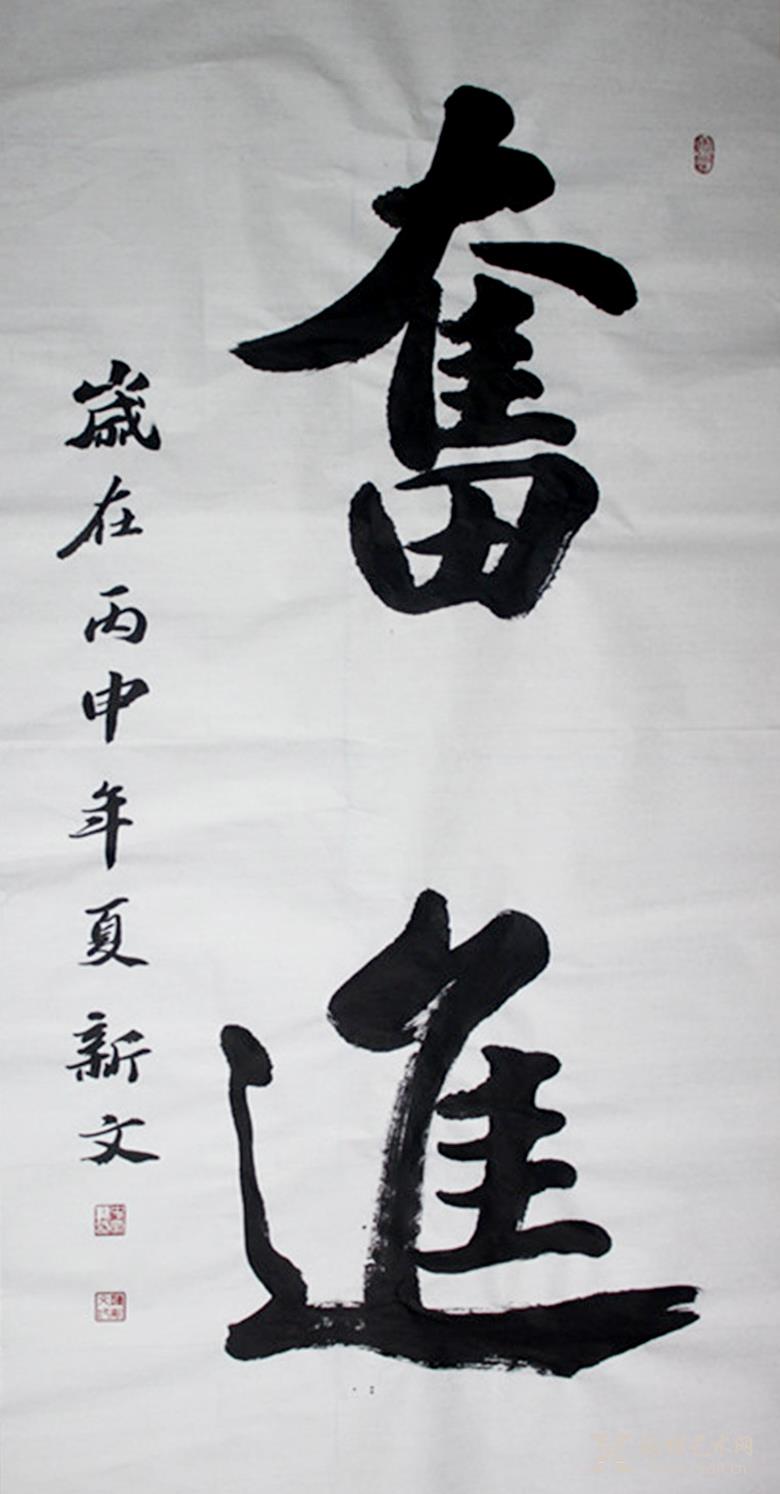 奮進
歲在丙申年夏新文